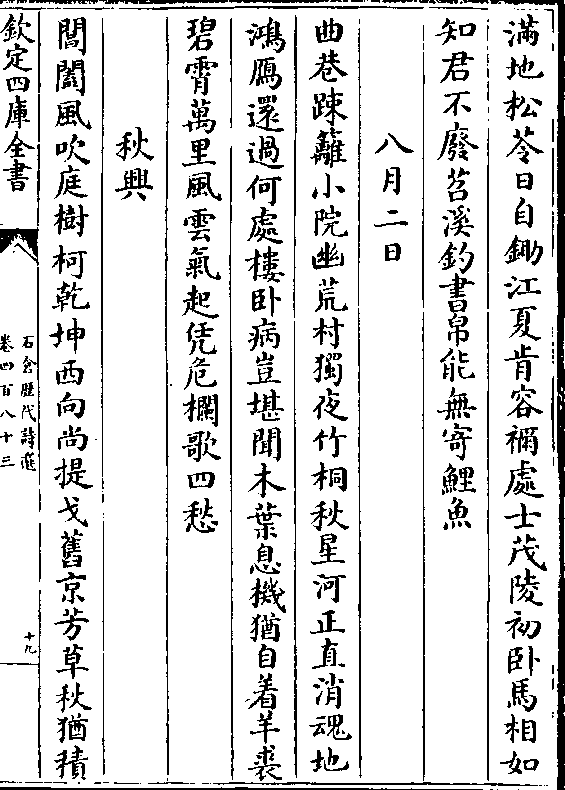 滿地松苓日自鋤江夏肯容禰處士茂陵初臥馬相如
知君不廢苕溪釣書帛能無寄鯉魚
八月二日
曲巷踈籬小院幽荒村獨夜竹梧秋星河正直消魂地
鴻鴈還過何處樓卧病豈堪聞木葉息機猶自着羊裘
碧霄萬里風雲氣起凭危欄歌四愁
秋興
閶闔風吹庭樹柯乾坤西向尚提戈舊京芳草秋猶積
欽定四庫全書
石倉歷代詩選
卷四百八十三
十九